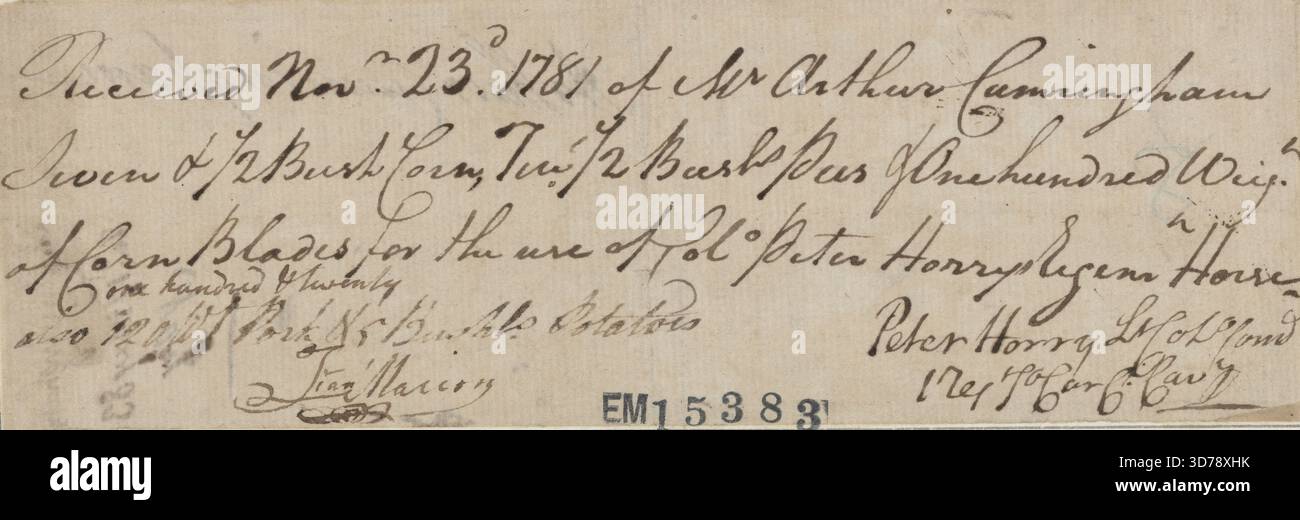 Received Novr 23d. 1781 of Mr Arthur Cunningham
Seven & 1/2 Bush Corn, Ten 1/2 Bushs Peas & One hundred Weigt
of Corn Blades for the use of Colo Peter Horrys Regemt Horse
one hundred & twenty
also 120 Wt Pork & 8 Bushls Potatoes
Fran Marion
Peter Horry Lt Colo Comd
Cavy
EM15383
alamy
Image ID: 3D78XHK
www.alamy.com